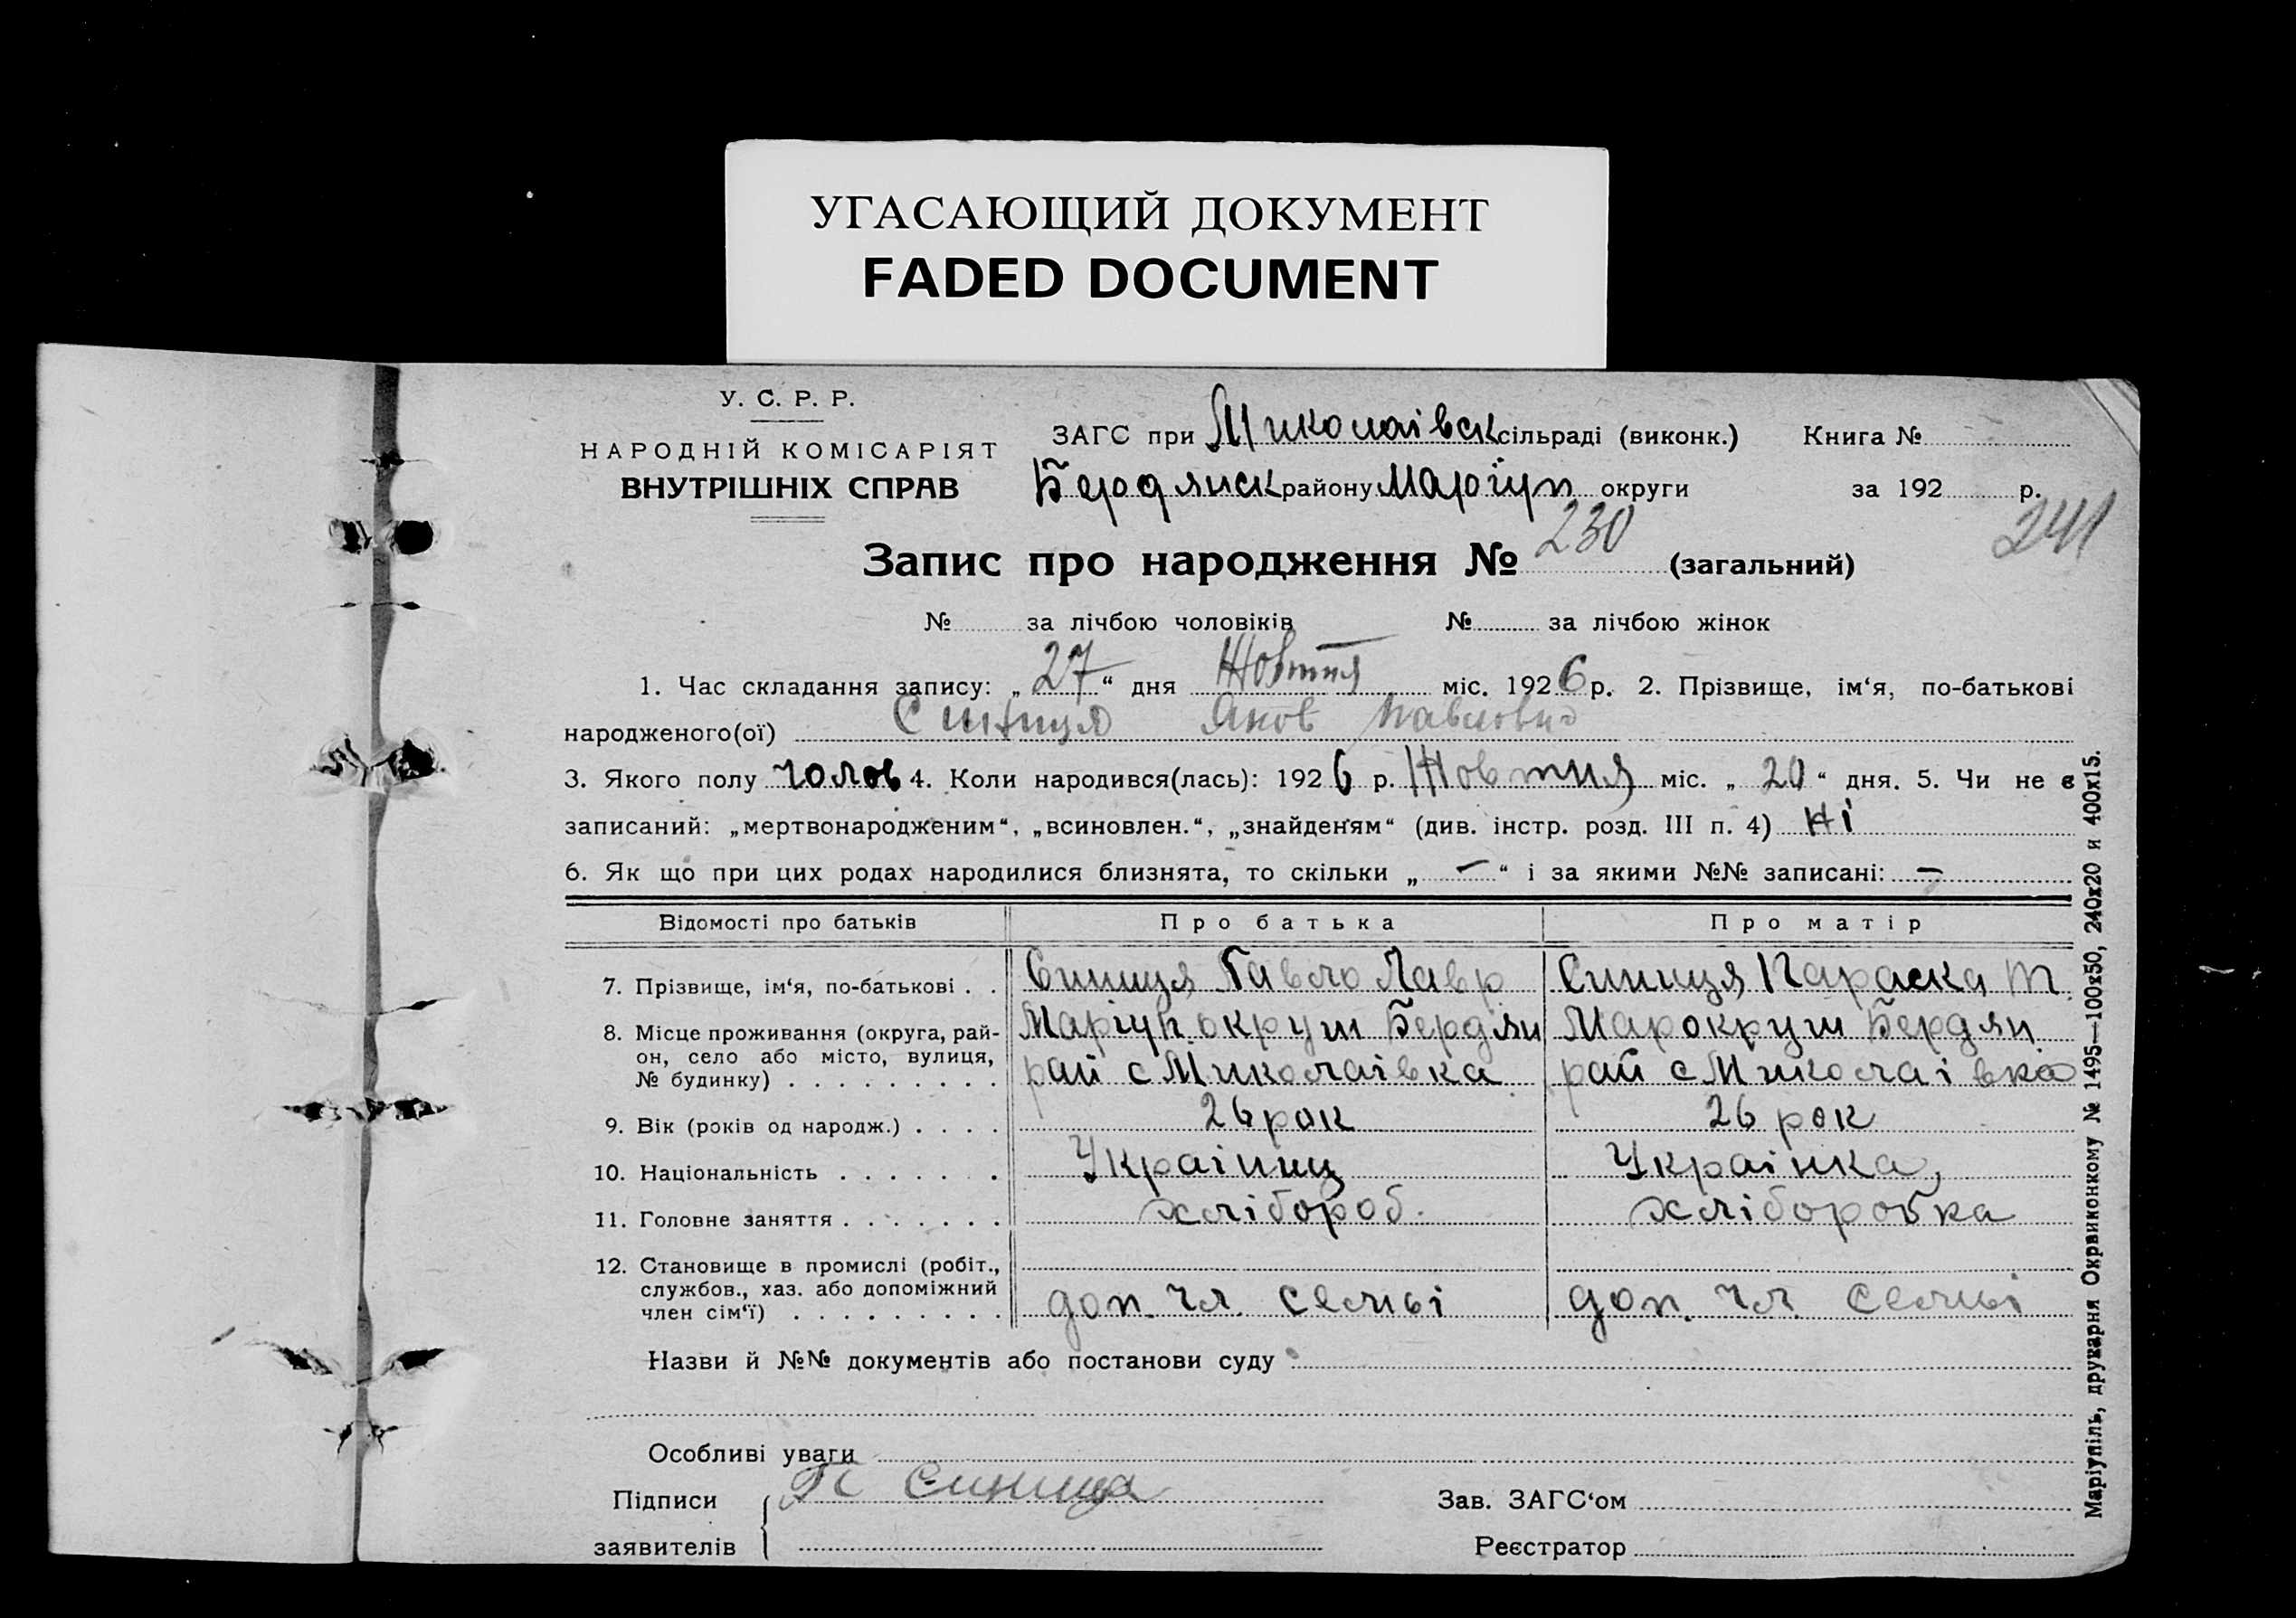 УГАСАЮЩИЙ ДОКУМЕНТ
FADED DOCUMENT
У. С. Р. Р.
НАРОДНІЙ КОМІСАРІЯТ
ВНУТРІШНІХ СПРАВ
ЗАГС при Миколаівск сільраді (виконк.) Книга №
Бердянск району Маріуп округи за 192 р.
241
Запис про народження № 230 (загальний)
№ за лічбою чоловіків № за лічбою жінок
1. Час складання запису: „27“ дня Жовтня міс. 1926 р. 2. Прізвище, ім‘я, по-батькові
народженого(ої) Синиця Яков Павлович
3. Якого полу чолов 4. Коли народився(лась): 1926 р. Жовтня міс. „20“ дня. 5. Чи не є
записаний: „мертвонародженим“, „всиновлен.“, „знайденям“ (див. інстр. розд. III п. 4) Ні
6. Як що при цих родах народилися близнята, то скільки „—“ і за якими №№ записані: —
Відомості про батьків Про батька Про матір
7. Прізвище, ім‘я, по-батькові . . Синиця Павло Лавр Синиця Параска Т.
8. Місце проживання (округа, рай- Маріуп округи Бердян Марокруги Бердян
он, село або місто, вулиця, рай с Миколаівка рай с Миколаівка
№ будинку) . . . . . . . . .
9. Вік (років од народж.) . . . . 26 рок 26 рок
10. Національність . . . . . . . Украінец Украінка,
11. Головне заняття . . . . . . . хлібороб. хлібороbка
12. Становище в промислі (робіт.,
службов., хаз. або допоміжний доп. чл. семьі доп. чл. семьі
член сім‘ї) . . . . . . . . .
Назви й №№ документів або постанови суду
Особливі уваги
Підписи Синица Зав. ЗАГС‘ом
заявителів Реєстратор
Маріупіль, друкарня Окрвиконкому № 1495—100х50, 240х20 и 400х15.